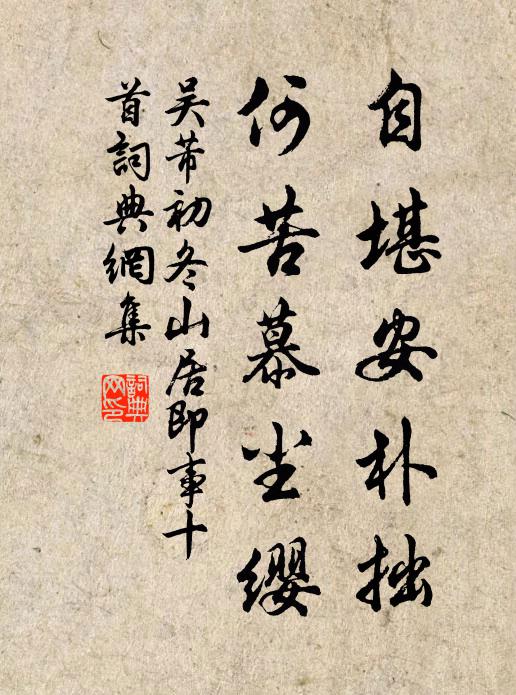 自堪安朴拙
何苦慕尘缨
吴芾初冬山居即事十
首詞典網集
詞典
网印